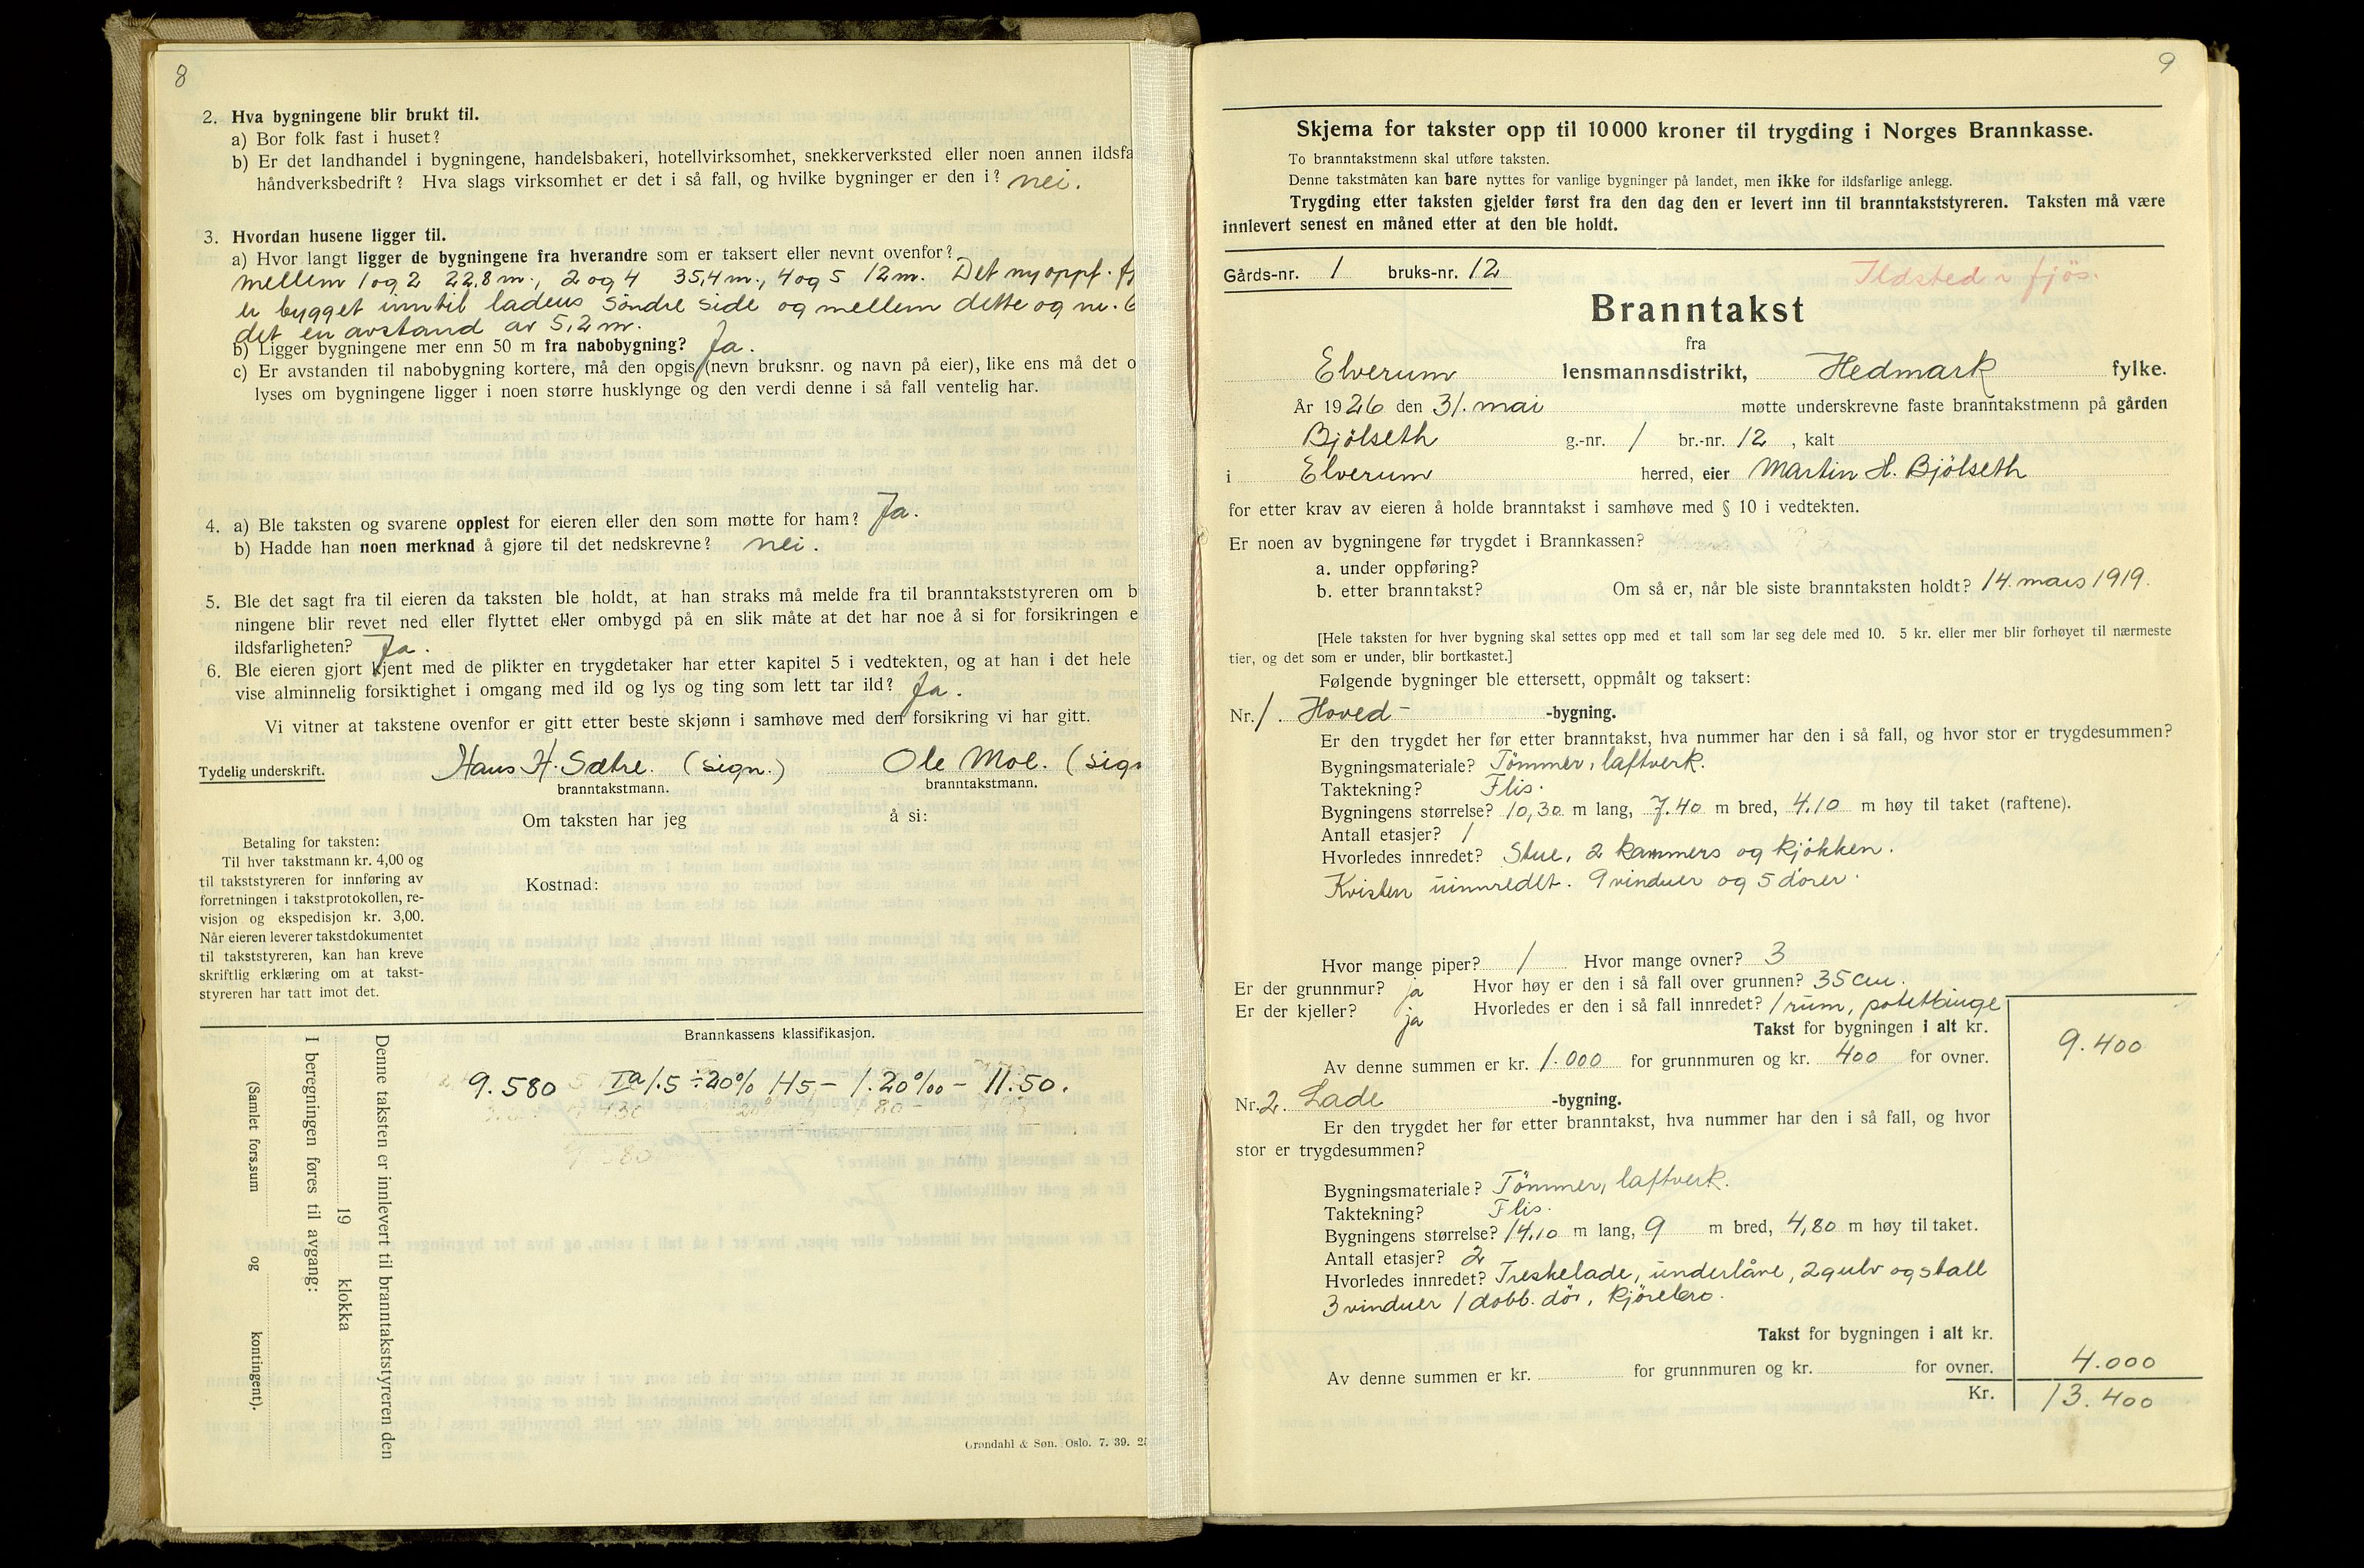 8
2. Hva bygningene blir brukt til.
a) Bor folk fast i huset?
b) Er det landhandel i bygningene, handelsbakeri, hotellvirksomhet, snekkerverksted eller noen annen ildsfa
håndverksbedrift? Hva slags virksomhet er det i så fall, og hvilke bygninger er den i? nei.
3. Hvordan husene ligger til.
a) Hvor langt ligger de bygningene fra hverandre som er taksert eller nevnt ovenfor?
mellem 1 og 2 22,8 m., 2 og 4 35,4 m., 4 og 5 12 m. Det ny oppf. fj
er bygget inntil ladens søndre side og mellem dette og nr. 6
det en avstand av 5,2 m.
b) Ligger bygningene mer enn 50 m fra nabobygning? Ja.
c) Er avstanden til nabobygning kortere, må den opgis (nevn bruksnr. og navn på eier), like ens må det o
lyses om bygningene ligger i noen større husklynge og den verdi denne i så fall ventelig har.
4. a) Ble taksten og svarene opplest for eieren eller den som møtte for ham? Ja.
b) Hadde han noen merknad å gjøre til det nedskrevne? nei.
5. Ble det sagt fra til eieren da taksten ble holdt, at han straks må melde fra til branntakststyreren om b
ningene blir revet ned eller flyttet eller ombygd på en slik måte at det har noe å si for forsikringen e
ildsfarligheten? Ja.
6. Ble eieren gjort kjent med de plikter en trygdetaker har etter kapitel 5 i vedtekten, og at han i det hele
vise alminnelig forsiktighet i omgang med ild og lys og ting som lett tar ild? Ja.
Vi vitner at takstene ovenfor er gitt etter beste skjønn i samhøve med den forsikring vi har gitt.
Tydelig underskrift. Hans H. Sætre. (sign.) Ole Moe. (sign
branntakstmann. branntakstmann.
Om taksten har jeg å si:
Betaling for taksten:
Til hver takstmann kr. 4,00 og
til takststyreren for innføring av
forretningen i takstprotokollen, re-
visjon og ekspedisjon kr. 3,00.
Når eieren leverer takstdokumentet
til takststyreren, kan han kreve
skriftlig erklæring om at takst-
styreren har tatt imot det.
Kostnad:
Brannkassens klassifikasjon.
9.580 Ia 1.5 ÷ 20% H5 – 1.20 ‰ – 11.50.
Denne taksten er innlevert til branntakststyreren den
19 klokka
I beregningen føres til avgang:
(Samlet fors.sum og kontingent).
Grøndahl & Søn. Oslo. 7. 39. 25
9
Skjema for takster opp til 10 000 kroner til trygding i Norges Brannkasse.
To branntakstmenn skal utføre taksten.
Denne takstmåten kan bare nyttes for vanlige bygninger på landet, men ikke for ildsfarlige anlegg.
Trygding etter taksten gjelder først fra den dag den er levert inn til branntakststyreren. Taksten må være
innlevert senest en måned etter at den ble holdt.
Gårds-nr. 1 bruks-nr. 12 Ildsted i fjøs.
Branntakst
fra
Elverum lensmannsdistrikt, Hedmark fylke.
År 1926 den 31. mai møtte underskrevne faste branntakstmenn på gården
Bjölseth g.-nr. 1 br.-nr. 12, kalt
i Elverum herred, eier Martin H. Bjölseth
for etter krav av eieren å holde branntakst i samhøve med § 10 i vedtekten.
Er noen av bygningene før trygdet i Brannkassen?
a. under oppføring?
b. etter branntakst? Om så er, når ble siste branntaksten holdt? 14. mars 1919.
[Hele taksten for hver bygning skal settes opp med et tall som lar seg dele med 10. 5 kr. eller mer blir forhøyet til nærmeste
tier, og det som er under, blir bortkastet.]
Følgende bygninger ble ettersett, oppmålt og taksert:
Nr. 1. Hoved- -bygning.
Er den trygdet her før etter branntakst, hva nummer har den i så fall, og hvor stor er trygdesummen?
Bygningsmateriale? Tömmer, laftverk.
Taktekning? Flis.
Bygningens størrelse? 10,30 m lang, 7.40 m bred, 4.10 m høy til taket (raftene).
Antall etasjer? 1
Hvorledes innredet? Stue, 2 kammers og kjökken.
Kvisten uinnredet. 9 vinduer og 5 dörer.
Hvor mange piper? 1 Hvor mange ovner? 3
Er der grunnmur? ja Hvor høy er den i så fall over grunnen? 35 cm.
Er der kjeller? ja Hvorledes er den i så fall innredet? 1 rum, potetbinge
Takst for bygningen i alt kr. 9.400
Av denne summen er kr. 1.000 for grunnmuren og kr. 400 for ovner.
Nr. 2. Lade -bygning.
Er den trygdet her før etter branntakst, hva nummer har den i så fall, og hvor
stor er trygdesummen?
Bygningsmateriale? Tömmer, laftverk.
Taktekning? Flis.
Bygningens størrelse? 14,10 m lang, 9 m bred, 4,80 m høy til taket.
Antall etasjer? 2
Hvorledes innredet? Treskelade, underlåve, 2 gulv og stall
3 vinduer 1 dobb. dör, kjörebro.
Takst for bygningen i alt kr. 4.000
Av denne summen er kr. for grunnmuren og kr. for ovner.
Kr. 13.400